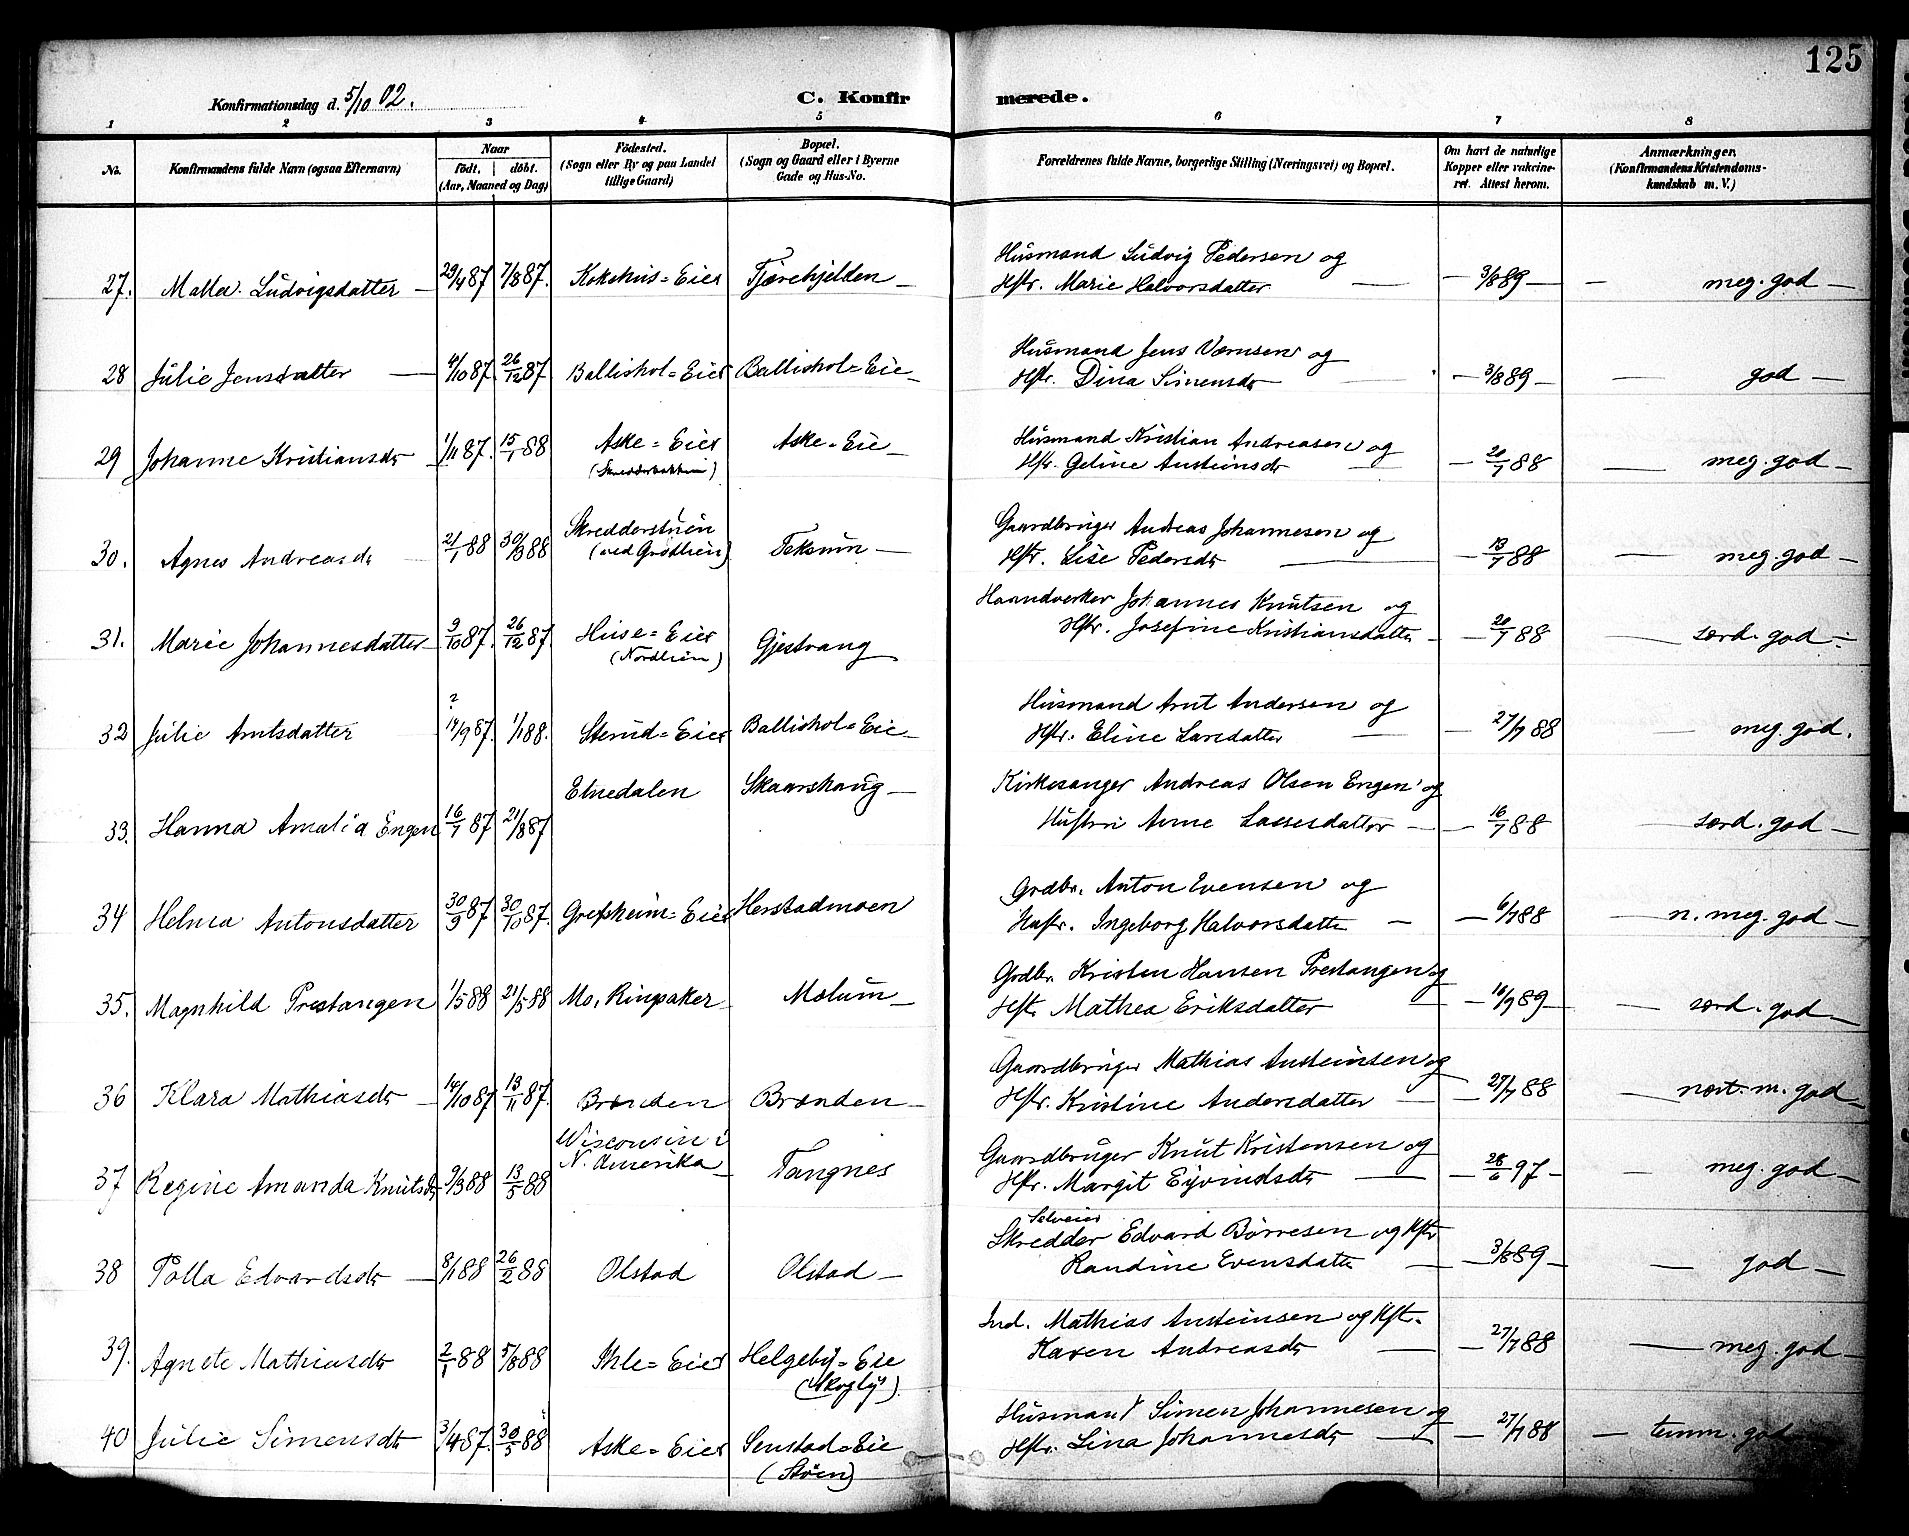 125
Konfirmationsdag d. 5/10 02.
C. Konfirmerede.
1 2 3 4 5 6 7 8
No. Konfirmandens fulde Navn (ogsaa Efternavn) Naar født, døbt. (Aar, Maaned og Dag) Fødested. (Sogn eller By og paa Landet tillige Gaard) Bopæl. (Sogn og Gaard eller i Byerne Gade og Hus-No. Forældrenes fulde Navne, borgerlige Stilling (Næringsvei) og Bopæl. Om havt de naturlige Kopper eller vakcineret. Attest herom. Anmærkninger. (Konfirmandens Kristendomskundskab m. V.)
27. Ludvigsdatter — 29/4 87 7/8 87. Kokehus=Eier Tjærehjelden —
Husmand Ludvig Pedersen og
Hstr. Marie Halvorsdatter — — 3/8 89 — — meg. god —
28 Julie Jensdatter — 4/10 87 26/12 87 Ballishol=Eier Ballishol=Eie —
Husmand Jens og
Hstr. Dina Simensdr — 3/8 89 — — god —
29 Johanne Kristiansdr 1/11 87. 15/1 88 Aske=Eier Aske=Eie —
Husmand Kristian Andreasen og
Hstr. Geline Austeinsdr — — 20/7 88 — meg. god —
30. Agnes Andreasdr 21/1 88 30/3 88 Skredderstuen Teksum —
Gaardbruger Andreas Johannesen og
Hstr. Lise Pedersdr — — 13/7 88 — meg. god —
31. Marie Johannesdatter — 9/10 87. 26/12 87. Huse=Eier (Nordlien) Gjestvang
Haandverker Johannes Knutsen og
Hstr. Josefine Kristiansdatter — — 20/7 88 — særd. god —
32 Julie Arntsdatter ? 14/9 87. 1/1 88. Sterud=Eier Ballishol=Eie —
Husmand Arnt Andersen og
Hstr. Eline Larsdatter — — 27/7 88 — meg. god.
33. Hanna Amalia Engen 16/7 87 21/8 87 Etnedalen Skaarshaug —
Kirkesanger Andreas Olsen Engen og
Hustru Anne Lassesdatter — — 16/7 88 — særd. god —
34 Helma Antonsdatter 30/9 87 30/10 87. Grefsheim=Eier Herstadmoen
Grdbr. Anton Evensen og
Hustr. Ingeborg Halvorsdatter — — 6/7 88 — n. meg. god —
35. Magnhild Prestangen 1/5 88 21/5 88 Mo, Ringsaker Molum —
Grdbr. Kristen Hansen Prestangen og
Hstr. Mathea Eriksdatter — — 16/9 89 — — særd. god —
36 Klara Mathiasdr — 14/10 87 13/11 87. Brænden Brænden —
Gaardbruger Mathias Austeinsen og
Hstr. Kristine Andersdatter — — 27/7 88 — næst. m. god —
37 Regine Amanda Knutsdr 9/3 88 13/5 88 Wisconsin i N. Amerika — Tangnes
Gaardbruger Knut Kristensen og
Hstr. Margit Eyvindsdr — — 28/6 97 — — meg. god —
38 Polla Edvardsdr — 8/1 88 26/2 88 Olstad Olstad —
Selveier
Skredder Edvard Børresen og Hstr
Randine Evensdatter — — 3/8 89 — — god —
39. Agnete Mathiasdr 2/1 88 5/8 88 Ihle=Eier Helgeby=Eie (Skogly).
Ind. Mathias Austeinsen og Hstr.
Karen Andreasdr — — 27/7 88 — meg. god —
40 Julie Simensdr 3/4 87. 30/5 88 Aske=Eier Senstad=Eie (Støen)
Husmand Simen Johannesen og
Hstr. Lina Johannesdr — — 27/7 88 — temm. god